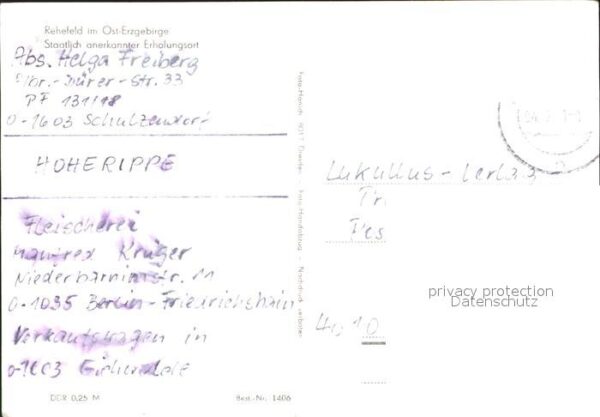 Rehefeld im Ost-Erzgebirge
Staatlich anerkannter Erholungsort
Abs. Helga Freiberg
Albr.-Dürer-Str. 33
PF 131/18
O-1603 Schulzendorf
HOHERIPPE
Fleischerei
Manfred Krüger
Niederbarnimstr. 11
O-1035 Berlin-Friedrichshain
Verkaufswagen in
O-1603 Eichwalde
DDR 0,25 M
Best.-Nr. 1406
Foto-Handabzug - Nachdruck verboten
Lukullus-Verlag
Pr
Pos
4010
privacy protection
Datenschutz